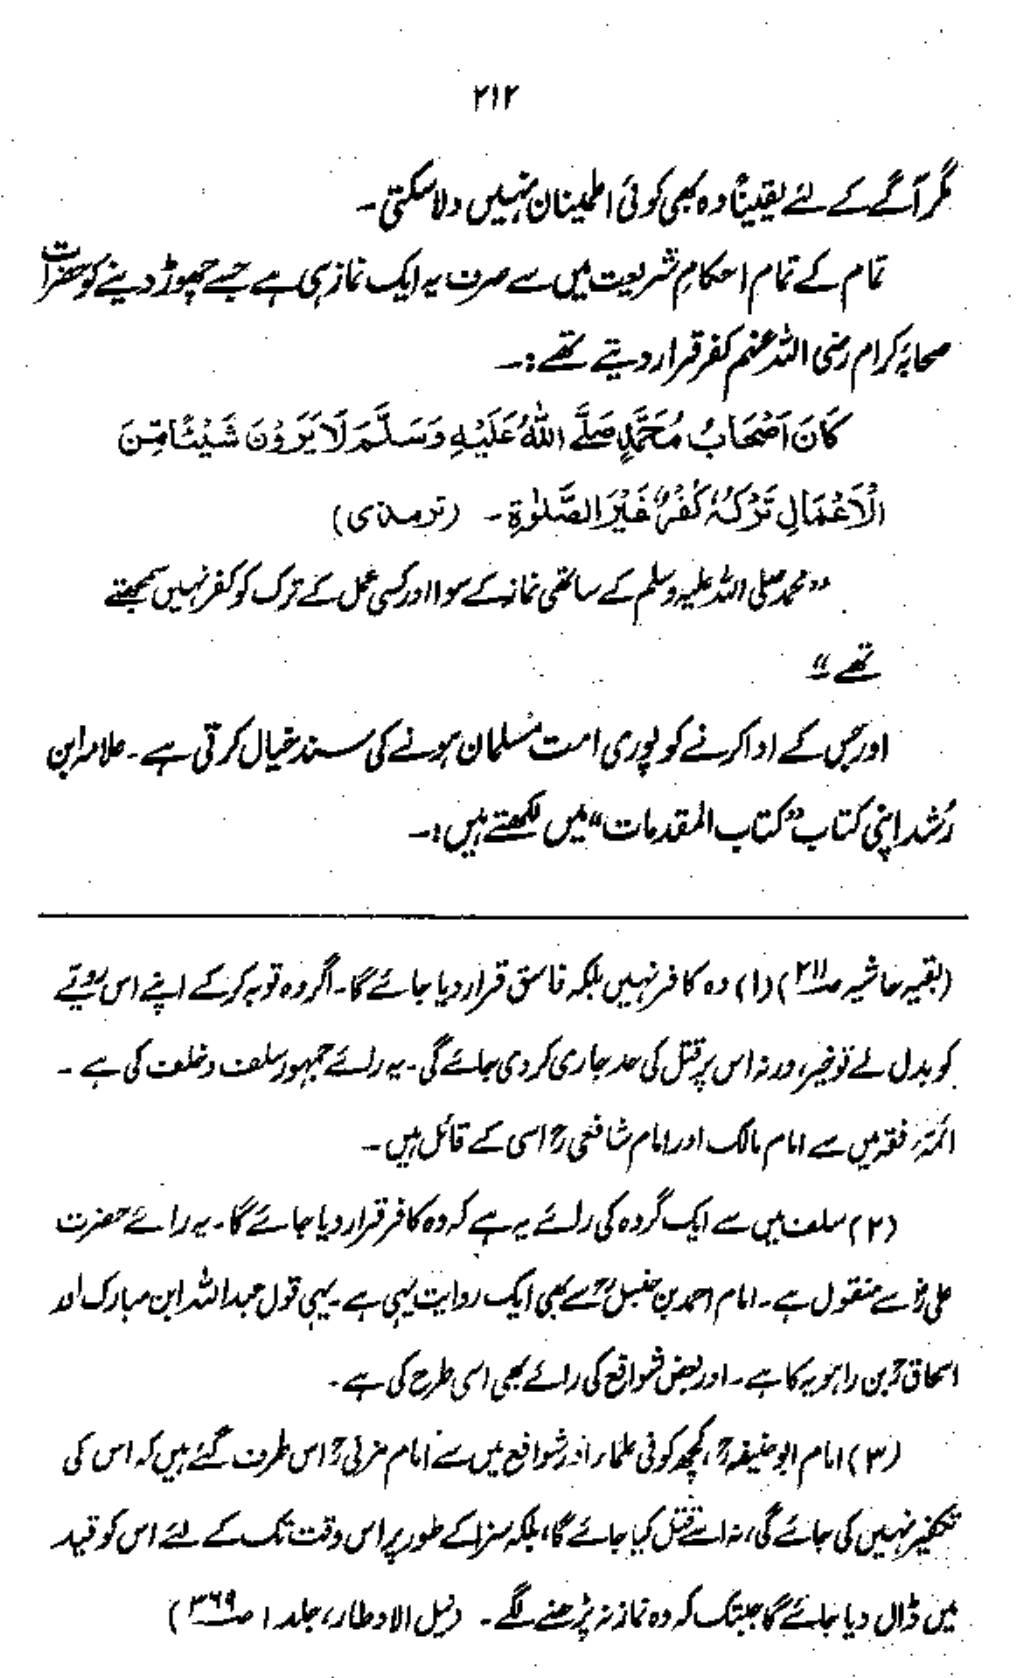 ۲۱۲
مگر آگے کے لئے یقیناً وہ بھی کوئی اطمینان نہیں دلا سکتی۔
تمام کے تمام احکامِ شریعت میں سے صرف یہ ایک نماز ہی ہے جسے چھوڑ دینے کو حضرات
صحابۂ کرام رضی اللہ عنہم کفر قرار دیتے تھے :۔
كَانَ اَصْحَابُ مُحَمَّدٍ صَلَّے اللّٰهُ عَلَيْهِ وَسَلَّمَ لَا يَرَوْنَ شَيْئًا مِّنَ
الْاَعْمَالِ تَرْكُهٗ كُفْرٌ غَيْرَ الصَّلٰوةِ ۔ (ترمذی)
”محمد صلی اللہ علیہ وسلم کے ساتھی نماز کے سوا اور کسی عمل کے ترک کو کفر نہیں سمجھتے
تھے“
اور جس کے ادا کرنے کو پوری امت مسلمان ہونے کی سند خیال کرتی ہے۔ علامہ ابن
رُشد اپنی کتاب ”کتاب المقدمات“ میں لکھتے ہیں :۔
(بقیہ حاشیہ صـ۲۱۱) (۱) وہ کافر نہیں بلکہ فاسق قرار دیا جائے گا۔ اگر وہ توبہ کر کے اپنے اس رویّے
کو بدل لے تو خیر، ورنہ اس پر قتل کی حد جاری کر دی جائے گی۔ یہ رائے جمہور سلف و خلف کی ہے ۔
ائمۂ فقہ میں سے امام مالک اور امام شافعیؒ اسی کے قائل ہیں۔
(۲) سلف میں سے ایک گروہ کی رائے یہ ہے کہ وہ کافر قرار دیا جائے گا۔ یہ رائے حضرت
علیؓ سے منقول ہے۔ امام احمد بن حنبلؒ سے بھی ایک روایت یہی ہے۔ یہی قول عبداللہ ابن مبارک اور
اسحاقؒ بن راہویہ کا ہے۔ اور بعض شوافع کی رائے بھی اسی طرح کی ہے۔
(۳) امام ابوحنیفہؒ، کچھ کوفی علماء اور شوافع میں سے امام مزنیؒ اس طرف گئے ہیں کہ اس کی
تکفیر نہیں کی جائے گی، نہ اسے قتل کیا جائے گا، بلکہ سزا کے طور پر اس وقت تک کے لئے اس کو قید
میں ڈال دیا جائے گا جبتک کہ وہ نماز نہ پڑھنے لگے۔ (نیل الاوطار، جلد ۱ صـ۳۶۹)